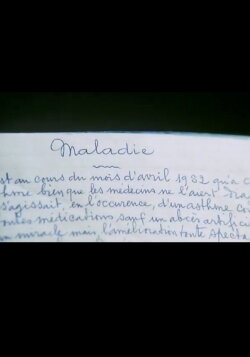 Maladie
st au cours du mois d'avril 1932 qu'a c
thme bien que les medecins ne l'aient
s'agissait, en l'occurence, d'un asthme con
toutes médications, sauf un abcès artifici
un miracle mais l'amélioration toute specta